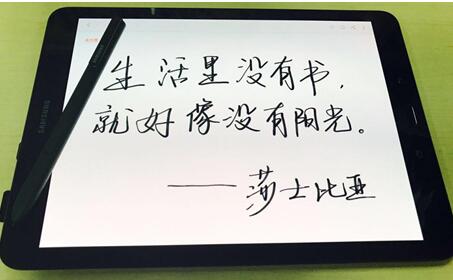 生活里没有书，
就好像没有阳光。
——莎士比亚
SAMSUNG